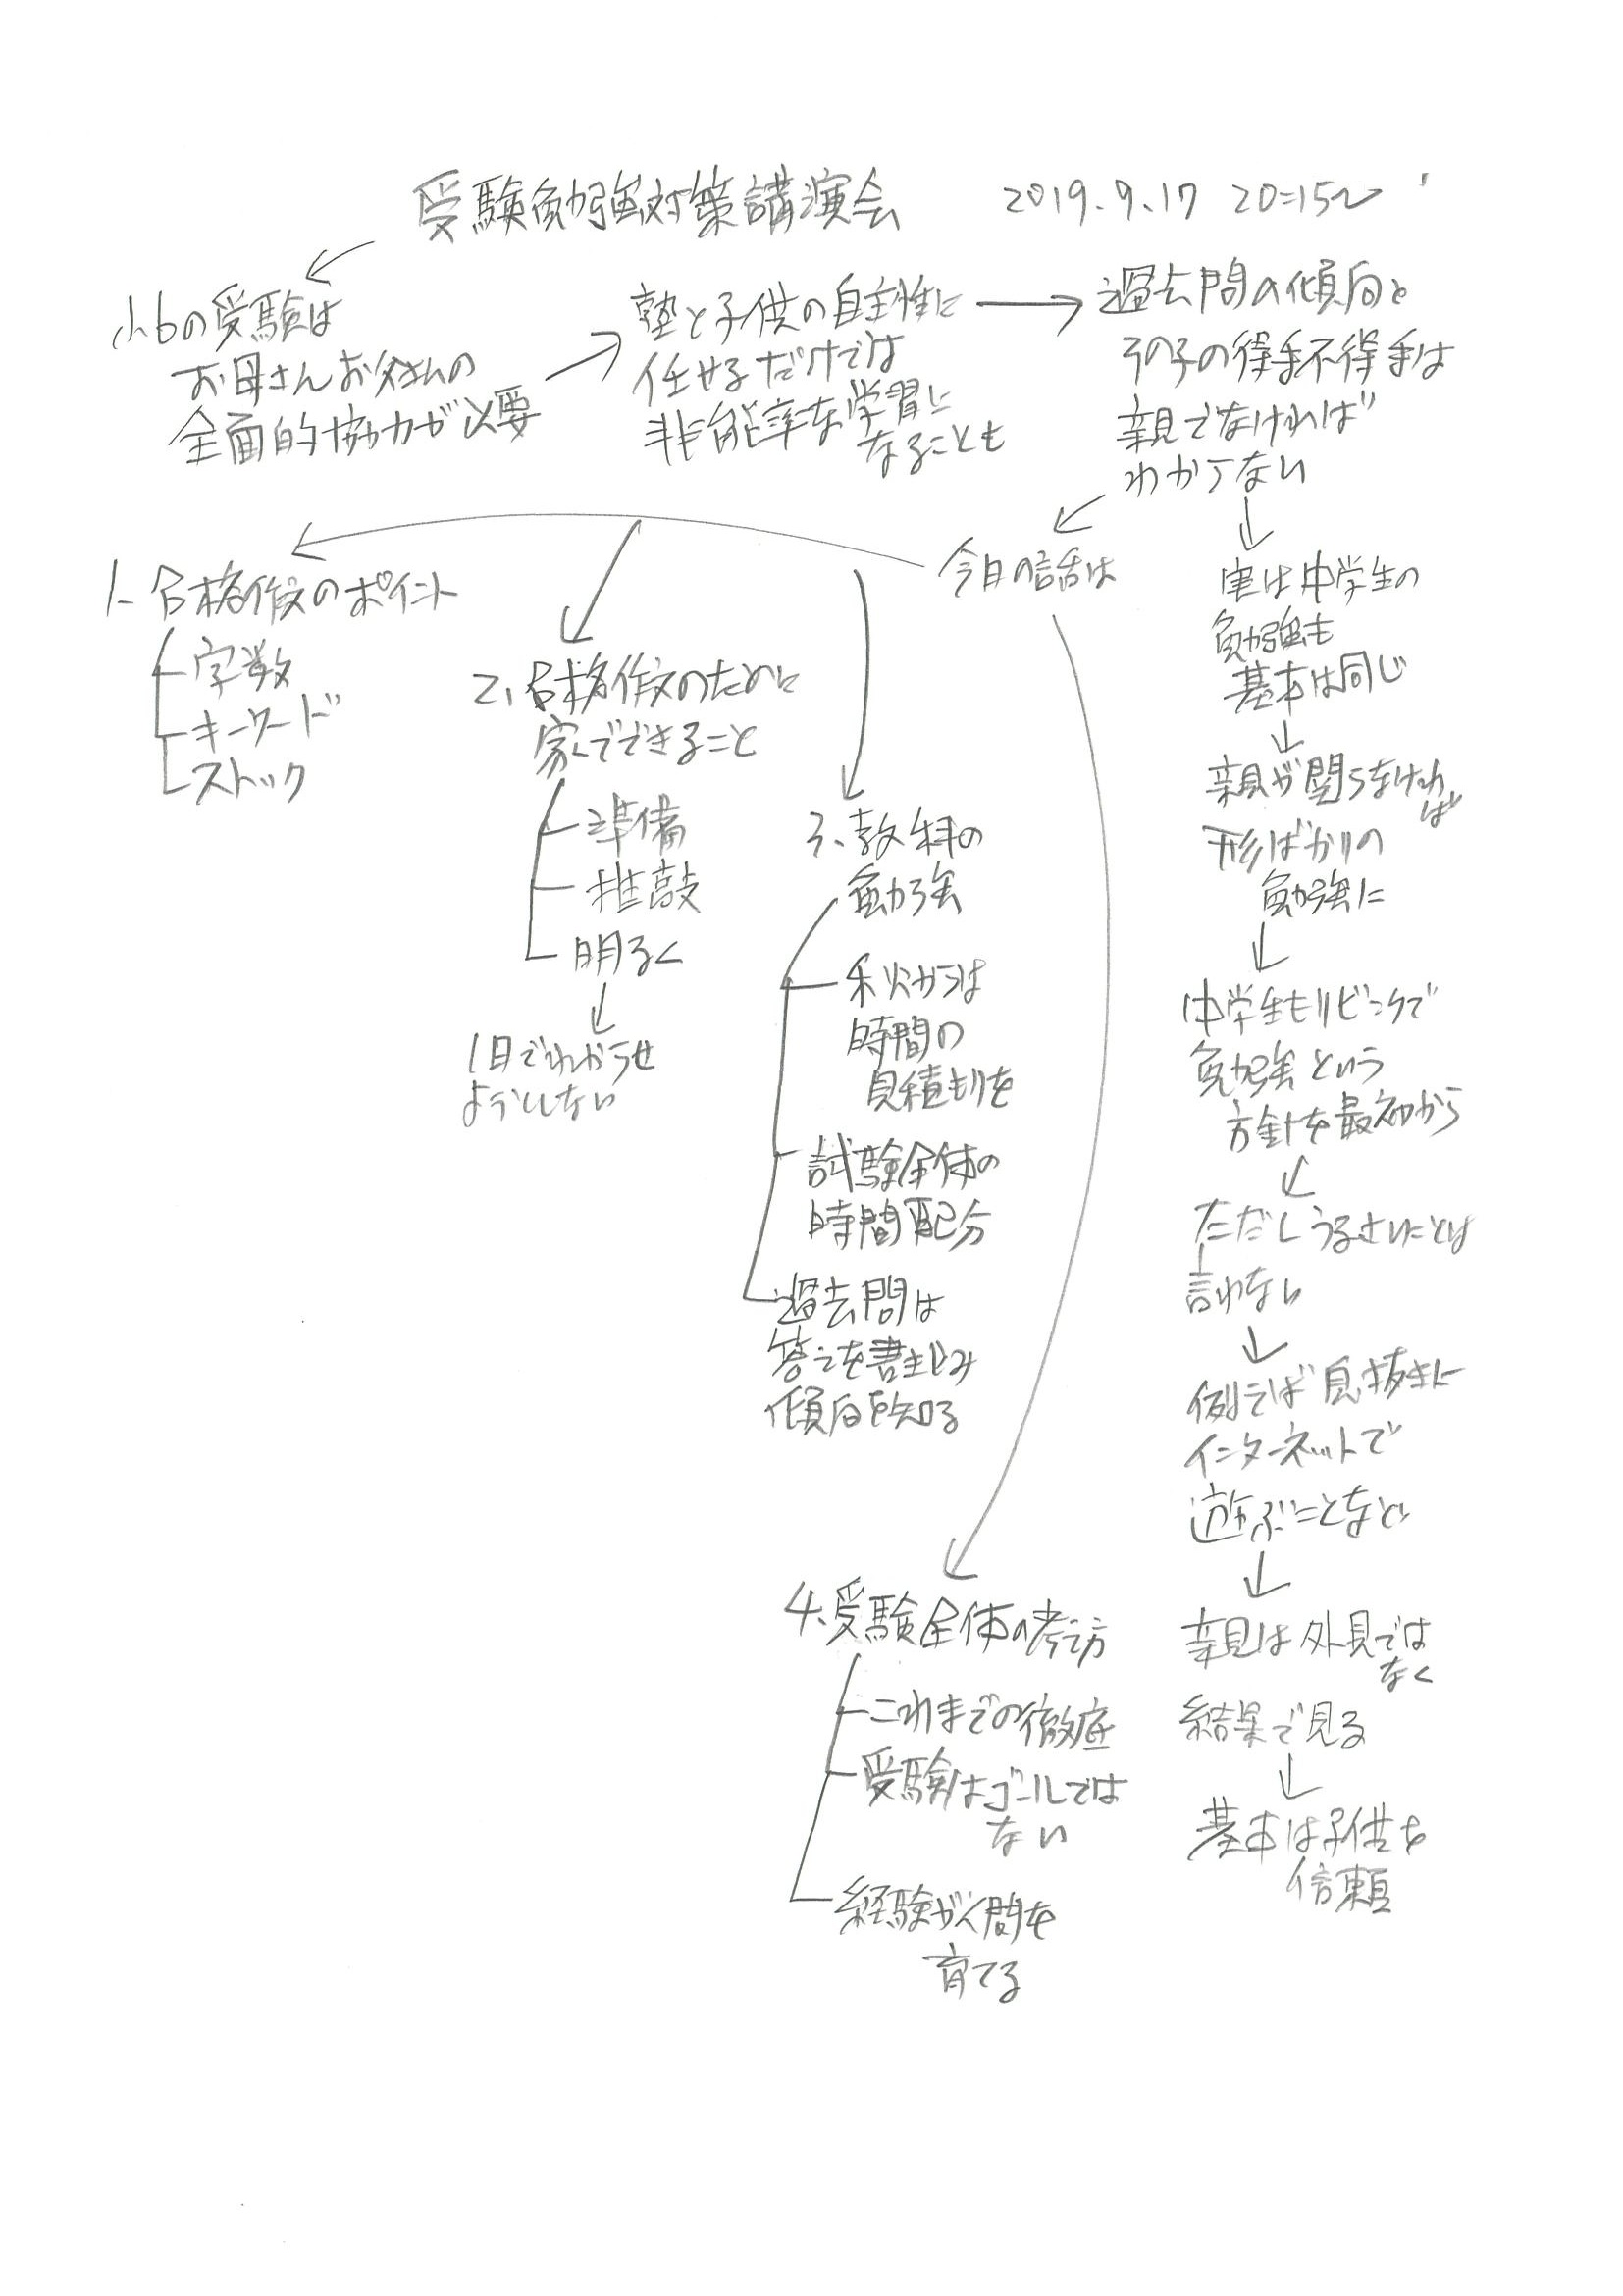 受験勉強対策講演会 2019.9.17 20:15〜
小6の受験は
お母さんお父さんの
全面的協力が必要
塾と子供の自主性に
任せるだけでは
非能率な学習に
なることも
過去問の傾向と
その子の得手不得手は
親でなければ
わからない
今日の話は
1. 合格作文のポイント
字数
キーワード
ストック
2、合格作文のために
家でできること
準備
推敲
明るく
1日でわからせ
ようとしない
3、教科の
勉強
秋からは
時間の
見積もりを
試験全体の
時間配分
過去問は
答えを書き込み
傾向を知る
4、受験全体の考え方
これまでの徹底
受験はゴールでは
ない
経験が人間を
育てる
実は中学生の
勉強も
基本は同じ
親が関らなければ
形ばかりの
勉強に
中学生もリビングで
勉強という
方針を最初から
ただしうるさいことは
言わない
例えば息抜きに
インターネットで
遊ぶことなど
親は外見では
なく
結果で見る
基本は子供を
信頼